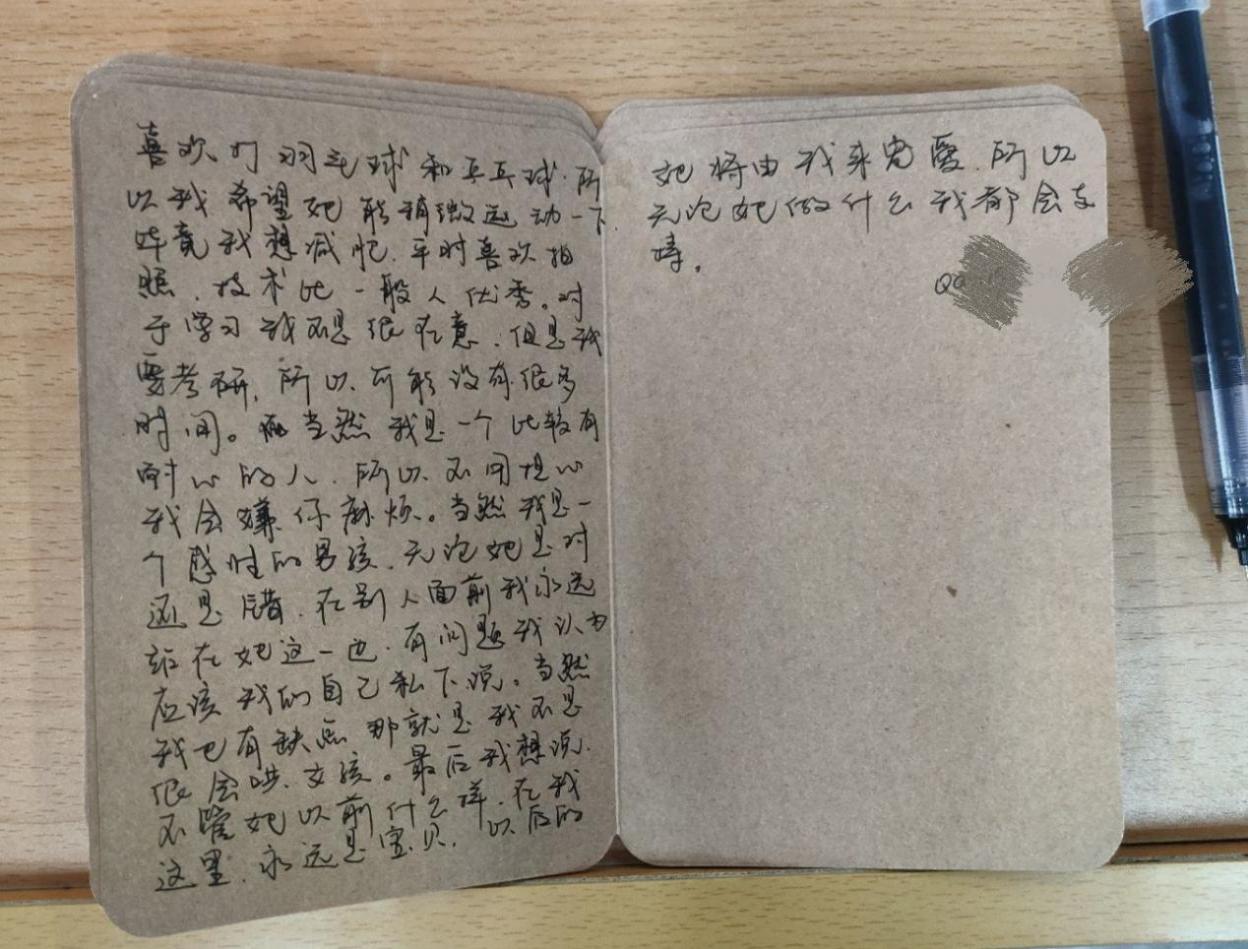 喜欢打羽毛球和乒乓球.所
以我希望她能稍微运动一下.
毕竟我想减肥.平时喜欢拍
照.技术比一般人优秀。对
于学习我不是很在意.但是我
要考研.所以可能没有很多
时间。当然我是一个比较有
耐心的人.所以不用担心
我会嫌你麻烦。当然我是一
个感性的男孩.无论她是对
还是错.在别人面前我永远
站在她这一边.有问题我认为
应该我们自己私下说。当然
我也有缺点那就是我不是
很会哄女孩。最后我想说.
不管她以前什么样.在我
这里.永远是宝贝.以后的
她将由我来宠爱.所以
无论她做什么我都会支
持.
QQ